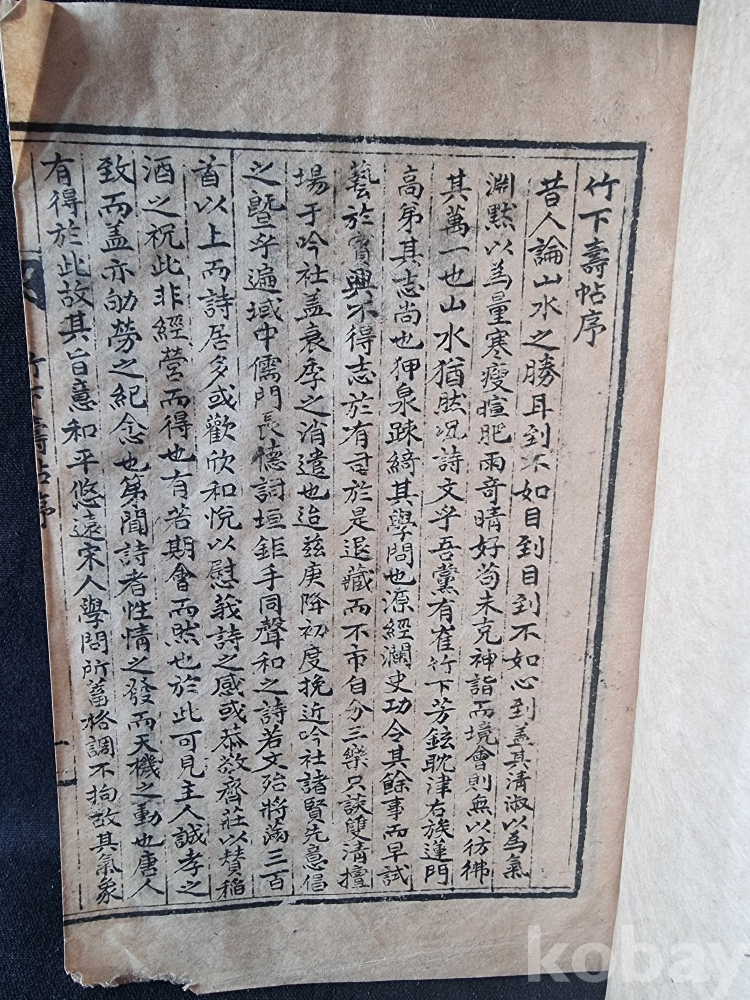 竹下壽帖序
昔人論山水之勝耳到不如目到目到不如心到盖其淸淑以為氣
淵默以為量寒瘦暄肥雨奇晴好苟未克神詣而境會則無以彷彿
其萬一也山水猶然况詩文乎吾黨有崔竹下芳鉉耽津右族蓮門
高弟其志尚也狎泉踈綺其學問也源經瀾史功令其餘事而早試
藝於賓興不得志於有司於是退藏而不市自分三樂只談雙清擅
場于吟社盖衰季之消遣也迨玆庚降初度挽近吟社諸賢先意倡
之曁乎遍域中儒門長德詞垣鉅手同聲和之詩若文殆將滿三百
首以上而詩居多或歡欣和悅以慰莪詩之感或恭敬齊莊以賛稱
酒之祝此非經營而得也有若期會而然也於此可見主人誠孝之
致而盖亦劬勞之紀念也第聞詩者性情之發而天機之動也唐人
有得於此故其旨意和平悠遠宋人學問所蓄格調不拘故其氣象
竹下壽帖序
一
kobay